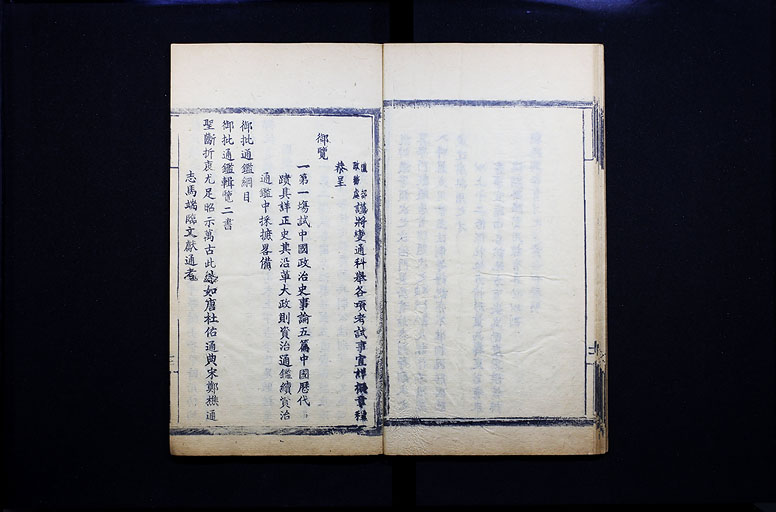 禮部
政務處謹將變通科舉各項考試事宜詳擬章程
恭呈
御覽
一第一場試中國政治史事論五篇中國歷代
蹟具詳正史其沿革大政則資治通鑑續資治
通鑑中採摭畧備
御批通鑑綱目
御批通鑑輯覽二書
聖斷折衷尤足昭示萬古此外如唐杜佑通典宋鄭樵通
志馬端臨文獻通考